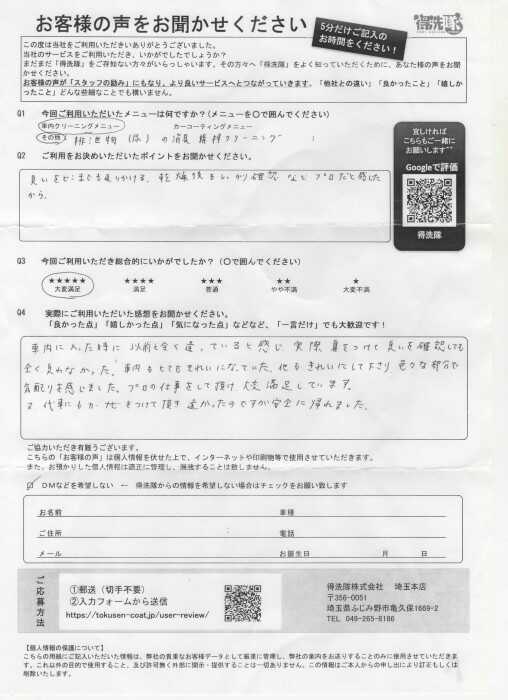 お客様の声をお聞かせください
5分だけご記入の
お時間をください！
得洗隊
この度は当社をご利用いただきありがとうございました。
当社のサービスをご利用いただき、いかがでしたでしょうか？
まだまだ「得洗隊」をご存知ない方がいらっしゃいます。その方々へ「得洗隊」をよく知っていただくために、あなた様の声をお聞かせください。
お客様の声が「スタッフの励み」にもなり、より良いサービスへとつながっていきます。「他社との違い」「良かったこと」「嬉しかったこと」どんな些細なことでも構いません。
Q1 今回ご利用いただいたメニューは何ですか？(メニューを〇で囲んでください)
車内クリーニングメニュー カーコーティングメニュー
その他 排泄物(尿)の消臭精神クリーニング )
Q2 ご利用をお決めいただいたポイントをお聞かせください。
臭いをどこまでも追いかける、乾燥後もしっかり確認などプロだと感じた
から。
宜しければ
こちらもご一緒に
お願いします^^
Googleで評価
得洗隊
Q3 今回ご利用いただき総合的にいかがでしたか？（〇で囲んでください）
★★★★★ ★★★★ ★★★ ★★ ★
大変満足 満足 普通 やや不満 大変不満
Q4 実際にご利用いただいた感想をお聞かせください。
「良かった点」「嬉しかった点」「気になった点」などなど、「一言だけ」でも大歓迎です！
車内に入った時に以前と全く違っていると感じ実際鼻をつけて臭いを確認しても
全く臭わなかった。車内もとてもきれいになっていた。他もきれいにして下さり色々な部分で
気配りを感じました。プロの仕事をして頂け大変満足しています。
又代車にもカーナビをつけて頂き遠かったのですが安全に帰れました。
ご協力いただき有難うございます。
こちらの「お客様の声」は個人情報を伏せた上で、インターネットや印刷物等で使用させていただきます。
また、お預かりした個人情報は適正に管理し、漏洩することは致しません。
DMなどを希望しない ← 得洗隊からの情報を希望しない場合はチェックをお願い致します
お名前 車種
ご住所 電話
メール お誕生日 月 日
ご応募方法
①郵送（切手不要）
②入力フォームから送信
https://tokusen-coat.jp/user-review/
得洗隊株式会社 埼玉本店
〒356-0051
埼玉県ふじみ野市亀久保1669-2
TEL 049-265-8186
【個人情報の保護について】
こちらの用紙にご記入いただいた情報は、弊社の貴重なお客様データとして厳重に管理し、弊社の案内をお送りすることのみに使用させていただきます。これ以外の目的で使用すること、及び許可無く外部に開示・提供することは一切ありません。この情報はご本人からの申し出により訂正もしくは削除いたします。